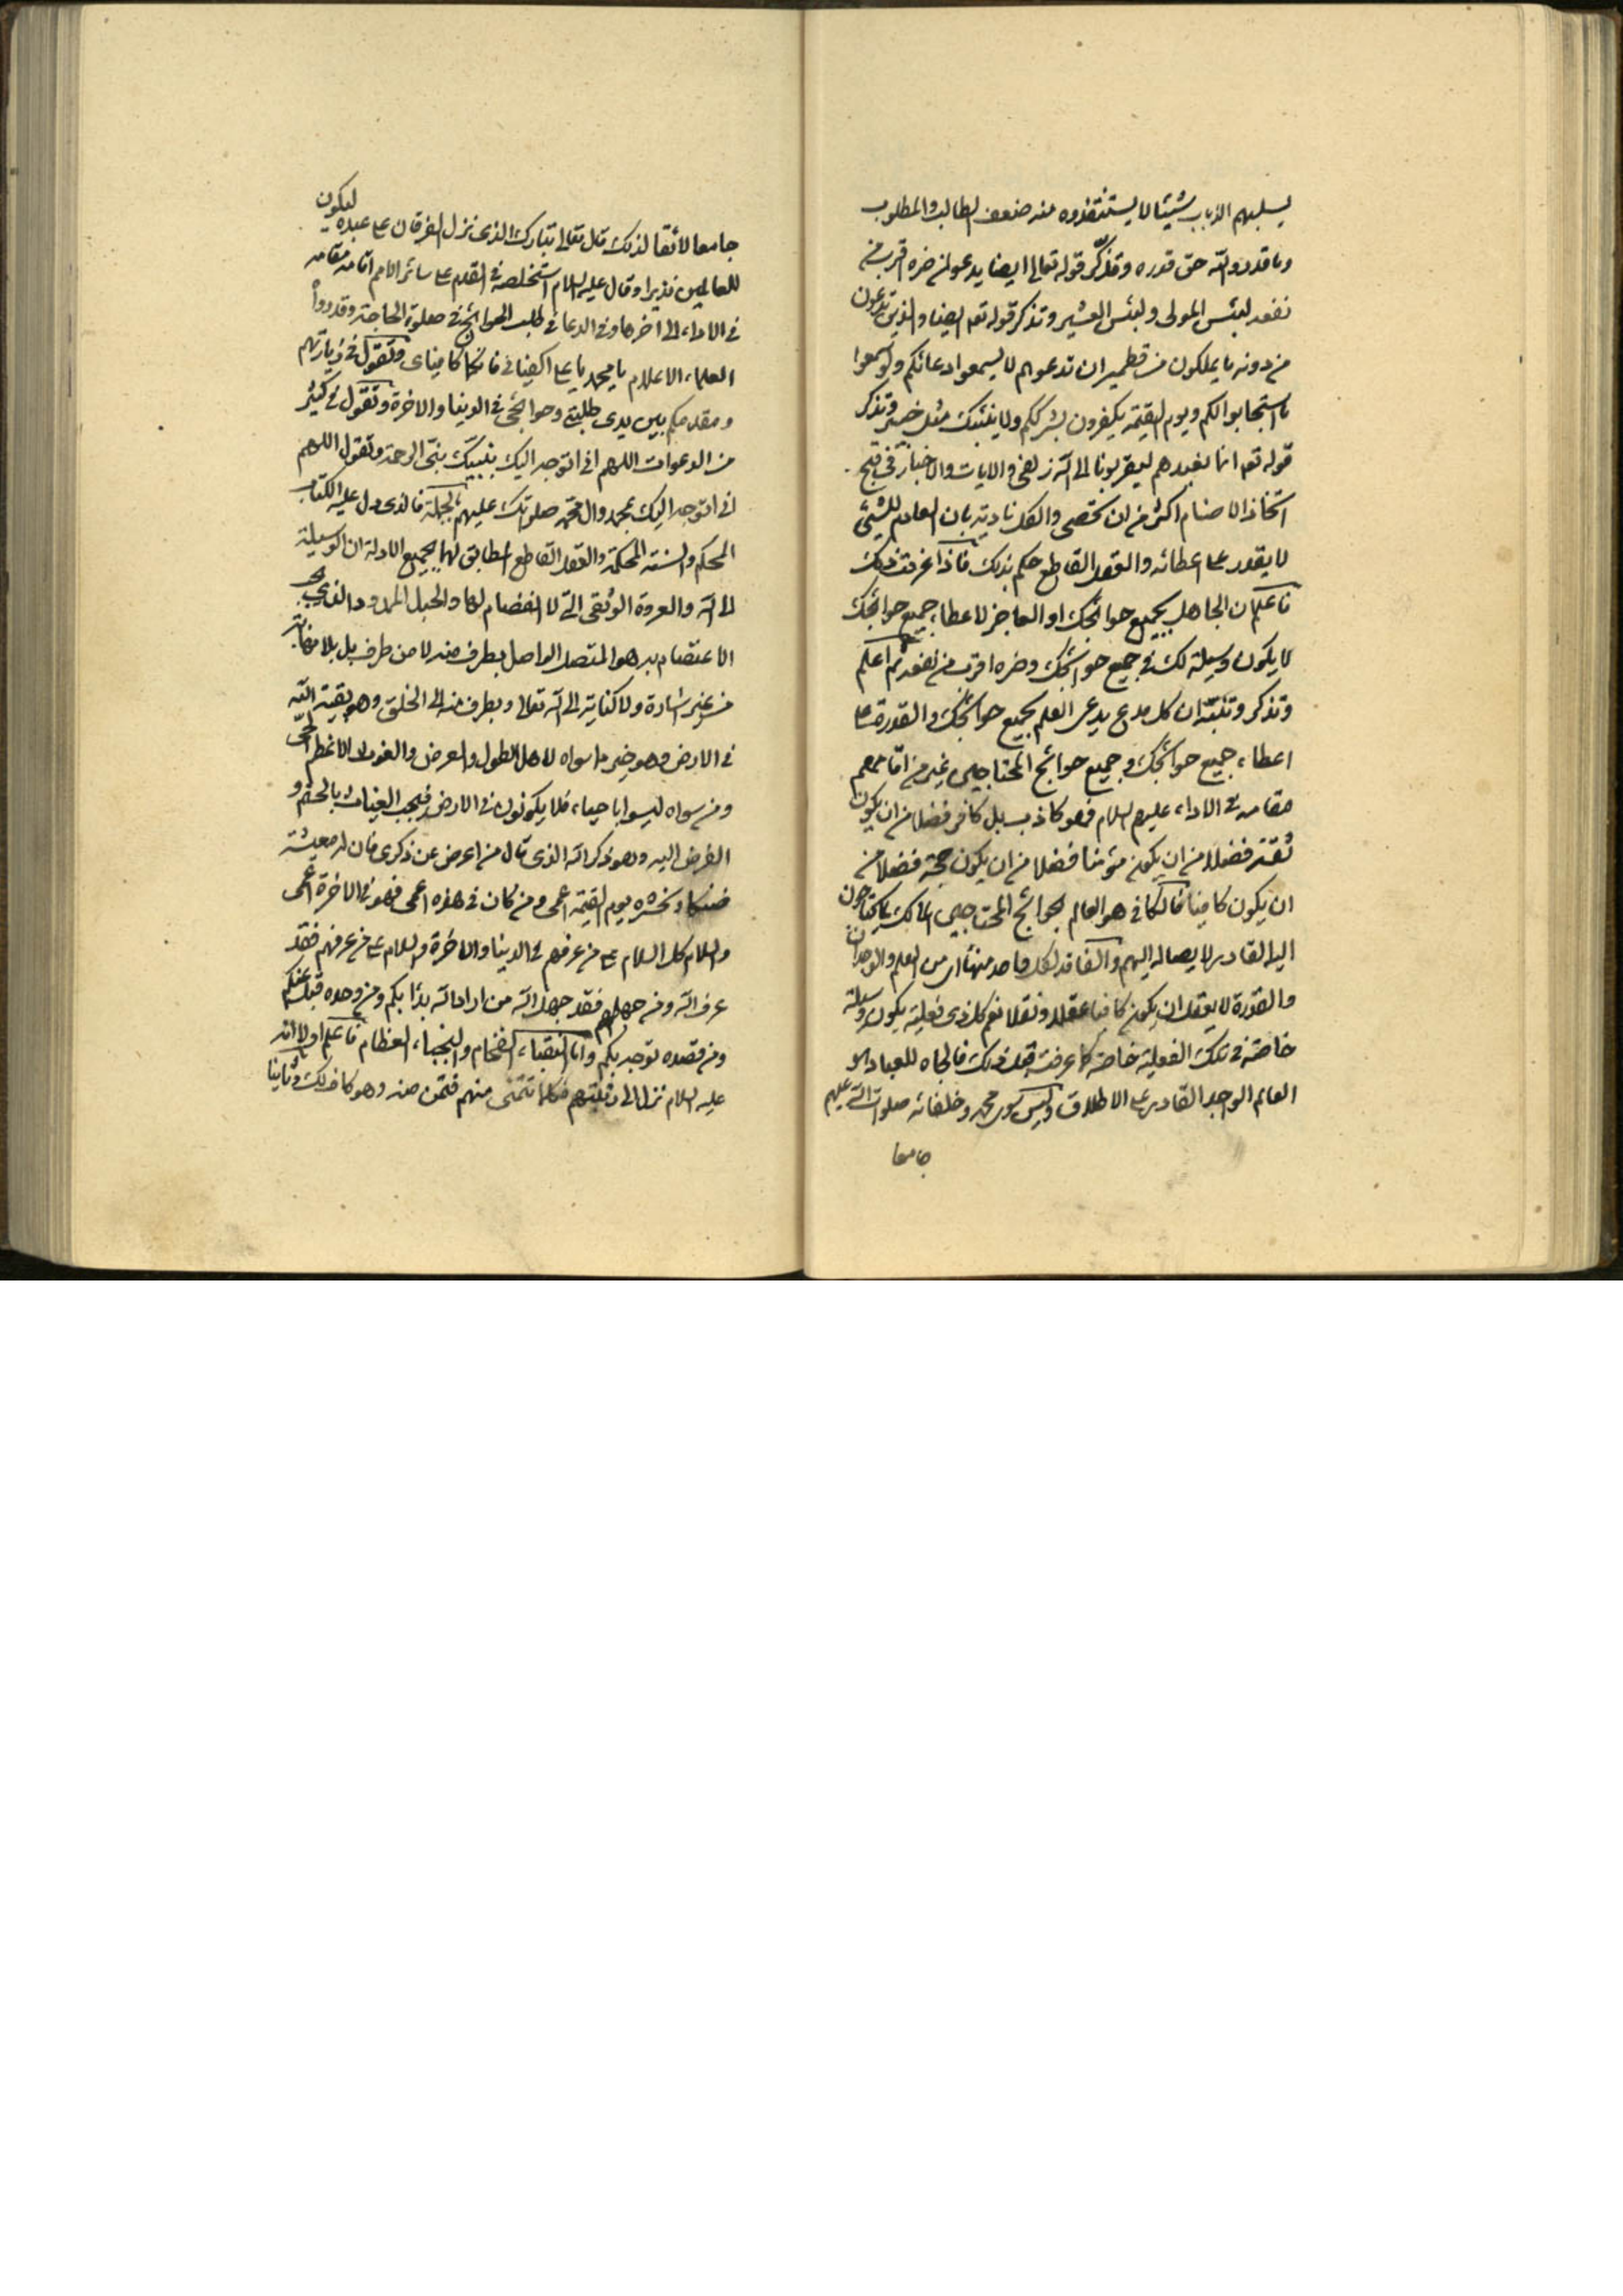 يسلبهم الذباب شيئا لا يستنقذوه منه ضعف الطالب والمطلوب
وما قدروا الله حق قدره وتذكّر قوله تعالى ايضا يدعو لمن ضره اقرب من
نفعه لبئس المولى ولبئس العشير وتذكر قوله تعم ايضا والذين تدعون
من دونه ما يملكون من قطمير ان تدعوهم لا يسمعوا دعائكم ولو سمعوا
ما استجابوا لكم ويوم القيمة يكفرون بشرككم ولا ينبئك مثل خبير وتذكر
قوله تعم انما نعبدهم ليقربونا الى الله زلفى والايات والاخبار في قبح
اتخاذ الاصنام اكثر من ان تحصى والكل نادية بان العادم للشئ
لا يقدر على اعطائه والعقل القاطع حكم بذلك فاذا عرفت ذلك
فاعلم ان الجاهل بجميع حوائجك او العاجز لاعطاء جميع حوائجك
لا يكون وسيلة لك في جميع حوائجك وضره اقرب من نفعه ثم اعلم
وتذكر وتنبّه ان كل مدع يدعي العلم بجميع حوائجك والقدرة على
اعطاء جميع حوائجك وجميع حوائج المحتاجين غير من اقامهم
مقامه في الاداء عليهم السلام فهو كاذب بل كافر فضلا من ان يكون
ثقة فضلا من ان يكون مؤمنا فضلا من ان يكون حجة فضلا من
ان يكون كافيا فالكافي هو العالم بحوائج المحتاجين المالك لما يحتاجون
اليه القادر لايصاله اليهم والفاقد لكل واحد منها اي من العلم والوجدان
والقدرة لا يعقل ان يكون كافيا عقلا ونقلا نعم كل ذي فعلية يكون وسيلة
خاصة في تلك الفعلية خاصة كما عرفت قبل ذلك فالجاه للعباد هو
العالم الواجد القادر على الاطلاق وليس سوى محمد وخلفائه صلوات الله عليهم
جامعا
جامعا لائقا لذلك قال تعالى تبارك الذي نزل الفرقان على عبده ليكون
للعالمين نذيرا وقال عليه السلام استخلصه في القدم على سائر الامم اقامه مقامه
في الاداء الى اخرها وفي الدعا في طلب الحوائج في صلوة الحاجة وقد رووا
العلماء الاعلام يا محمد يا علي اكفياني فانكما كافياي وتقول في زيارتهم
ومقدمكم بين يدى طلبتي وحوائجي في الدنيا والاخرة وتقول في كثير
من الدعوات اللهم اني اتوجه اليك بنبيك نبيّ الرحمة وتقول اللهم
اني اتوجه اليك بمحمد وال محمد صلواتك عليهم بالجملة فالذي دل عليه الكتاب
المحكم والسنة المحكمة والعقل القاطع المطابق لهما بجميع الادلة ان الوسيلة
الى الله والعروة الوثقى التي لا انفصام لها والحبل الممدود الذي يجب
الاعتصام به هو المتصل الواصل بطرف منه لا من طرف بل بلا نهاية
من غير اشارة ولا كناية الى الله تعالى وبطرف منه الى الخلق وهو بقية الله
في الارض وهو خير ما سواه لاهل الطول والعرض والغوث الاعظم الحي
ومن سواه ليسوا باحياء فلا يكونون في الارض فيجب الغياث بالحضر و
الفرض اليه وهو ذكر الله الذي قال من اعرض عن ذكري فان له معيشة
ضنكا ونحشره يوم القيمة اعمى ومن كان في هذه اعمى فهو في الاخرة اعمى
والسلام كل السلام على من عرفهم في الدنيا والاخرة والسلام على من عرفهم فقد
عرف الله ومن جهلهم فقد جهل الله من اراد الله بدأ بكم ومن وحده قبل عنكم
ومن قصده توجه بكم واما النقباء الفخام والنجباء العظام فاعلم اولا انه
عليه السلام نزلها الى رتبتهم فكلما تتمنى منهم فتمن منه وهو كاف لك وثانيا